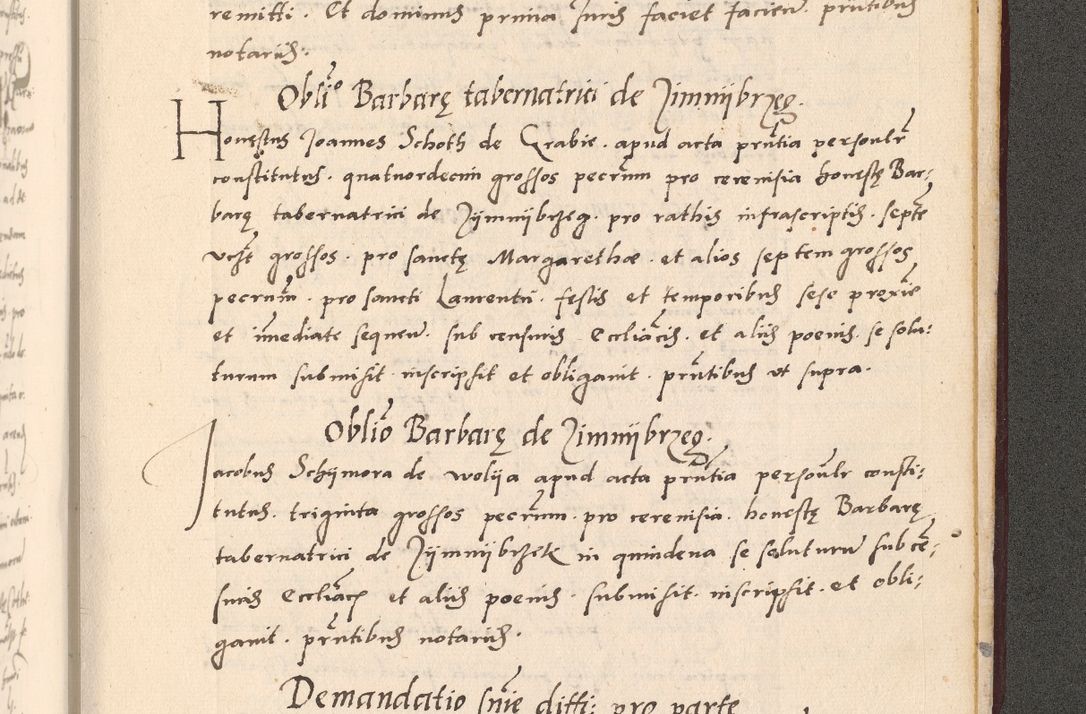 remitti. Et dominus prima Juris faciet faciem̃. pñtibus
notariis.
Oblĩo Barbarę tabernatrici de Zimnybrzeg.
Honęstus Joannes Schoth de Grabie. apud acta pñtia personlr̃
constitutus. quatuordecim grossos pecrũm pro cerevisia honestę Bar:
barę tabernatrici de Zijmnijbrzeg. pro rathis infrascriptis. septẽ
grossos. pro sanctę Margarethæ. et alios septem grossos
pecrũm. pro sancti Laurentii. festis et temporibus sese proxie
et im̃ediate sequeñ. sub censuris Ecclĩacis. et aliis poenis. se solu:
turum submisit. inscripsit et obligavit. pñtibus ut supra.
Oblĩo Barbarę de Zimnijbrzeg.
Jacobus Schijmora de Wolija apud acta pñtia personlr̃ consti:
tutus. triginta grossos pecrũm. pro cerevisia. honestę Barbarę
tabernatrici de Zijmnijbrzek in quindena se soluturum sub cẽ:
suris Ecclĩacis et aliis poenis. submisit. inscripsit. et obli:
gavit. pñtibus notariis.
Demandatio sñie diffi: pro parte